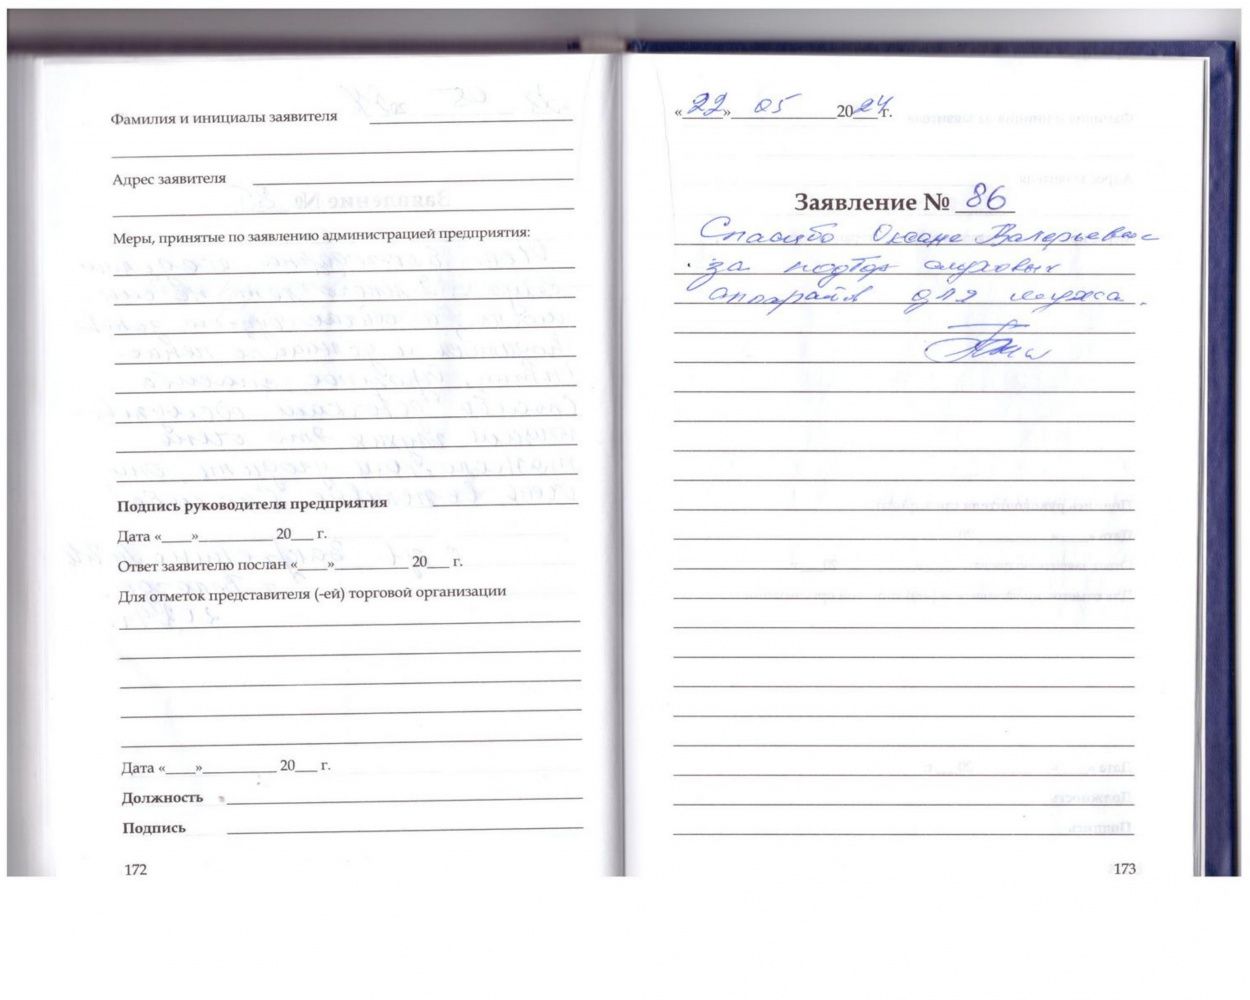 Фамилия и инициалы заявителя
Адрес заявителя
Меры, принятые по заявлению администрацией предприятия:
Подпись руководителя предприятия
Дата «____»__________ 20___ г.
Ответ заявителю послан «____»__________ 20___ г.
Для отметок представителя (-ей) торговой организации
Дата «____»__________ 20___ г.
Должность
Подпись
172
«22» 05 2024 г.
Заявление № 86
Спасибо Оксане Валерьевне
за подбор слуховых
аппаратов для мужа.
173